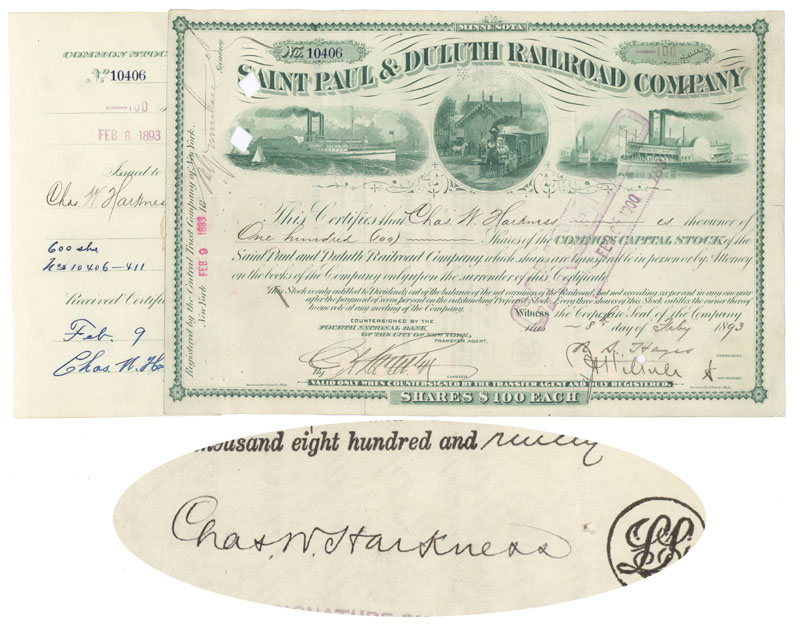 COMMON STOCK
No. 10406
100
FEB 8 1893
Issued to
Chas W Harkness
600 shs
Nos 10406-411
Received Certif
Feb. 9
Chas. W. Ha
Registered by the Central Trust Company of New York.
New York FEB 9 1893 18
Secretary
MINNESOTA
No. 10406
100
SAINT PAUL & DULUTH RAILROAD COMPANY
This Certifies that Chas W Harkness is the owner of
One hundred (100) Shares of the COMMON CAPITAL STOCK of the
Saint Paul and Duluth Railroad Company which shares are transferable in person or by Attorney
on the books of the Company only upon the surrender of this Certificate.
This Stock is only entitled to Dividends out of the balance of the net earnings of the Railroad but not exceeding six per cent in any one year
after the payment of seven per cent on the outstanding Preferred Stock. Every three shares of this Stock entitles the owner thereof
to one vote at any meeting of the Company.
Witness the Corporate Seal of the Company
this 8th day of Feby 1893
COUNTERSIGNED BY THE
FOURTH NATIONAL BANK,
OF THE CITY OF NEW YORK,
TRANSFER AGENT,
By
CASHIER.
R. S. Hayes
PRESIDENT.
SECRETARY.
VALID ONLY WHEN COUNTERSIGNED BY THE TRANSFER AGENT AND DULY REGISTERED.
SHARES $100 EACH
thousand eight hundred and ninety
Chas. W. Harkness